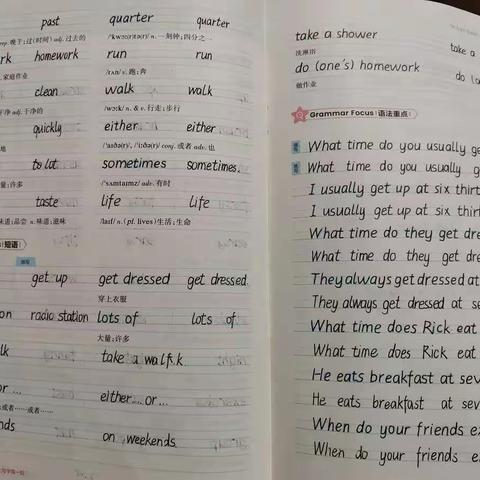 past quarter quarter
晚于;过(时间) adj. 过去的 /'kwɔː(r)tə(r)/ n. 一刻钟;四分之一
rk homework run run
家庭作业 /rʌn/ v. 跑;奔
clean walk walk
干净 adj. 干净的 /wɔːk/ n. & v. 行走;步行
quickly either either
地 /'aɪðə(r)/, /'iːðə(r)/ conj. 或者 adv. 也
to lot sometimes sometimes
量;许多 /'sʌmtaɪmz/ adv. 有时
taste life life
味道;品尝 n. 味道;滋味 /laɪf/ n. (pl. lives) 生活;生命
短语
get up get dressed get dressed
穿上衣服
on radio station lots of lots of
大量;许多
lk take a walk
or ... either ... or ...
或者……或者……
nds on weekends
take a shower take a
洗淋浴
do (one's) homework do
做作业
Grammar Focus 语法重点
What time do you usually ge
What time do you usually g
I usually get up at six thirt
I usually get up at six thirt
What time do they get dre
What time do they get dre
They always get dressed at
They always get dressed at se
What time does Rick eat
What time does Rick eat
He eats breakfast at sev
He eats breakfast at sev
When do your friends e
When do your friends ex